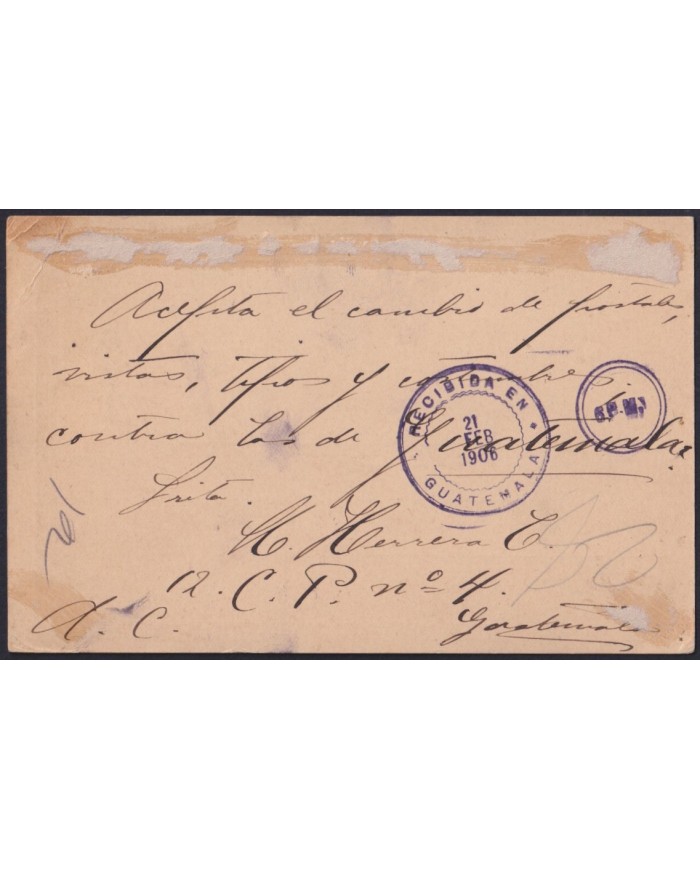 Acepta el cambio de postales,
vistas, tipos y costumbres
contra las de Guatemala,
RECIBIDA EN
21
FEB
1906
GUATEMALA
6 P-M
Srita.
M. Herrera C.
12. C. P. nº 4.
A. C.
Guatemala